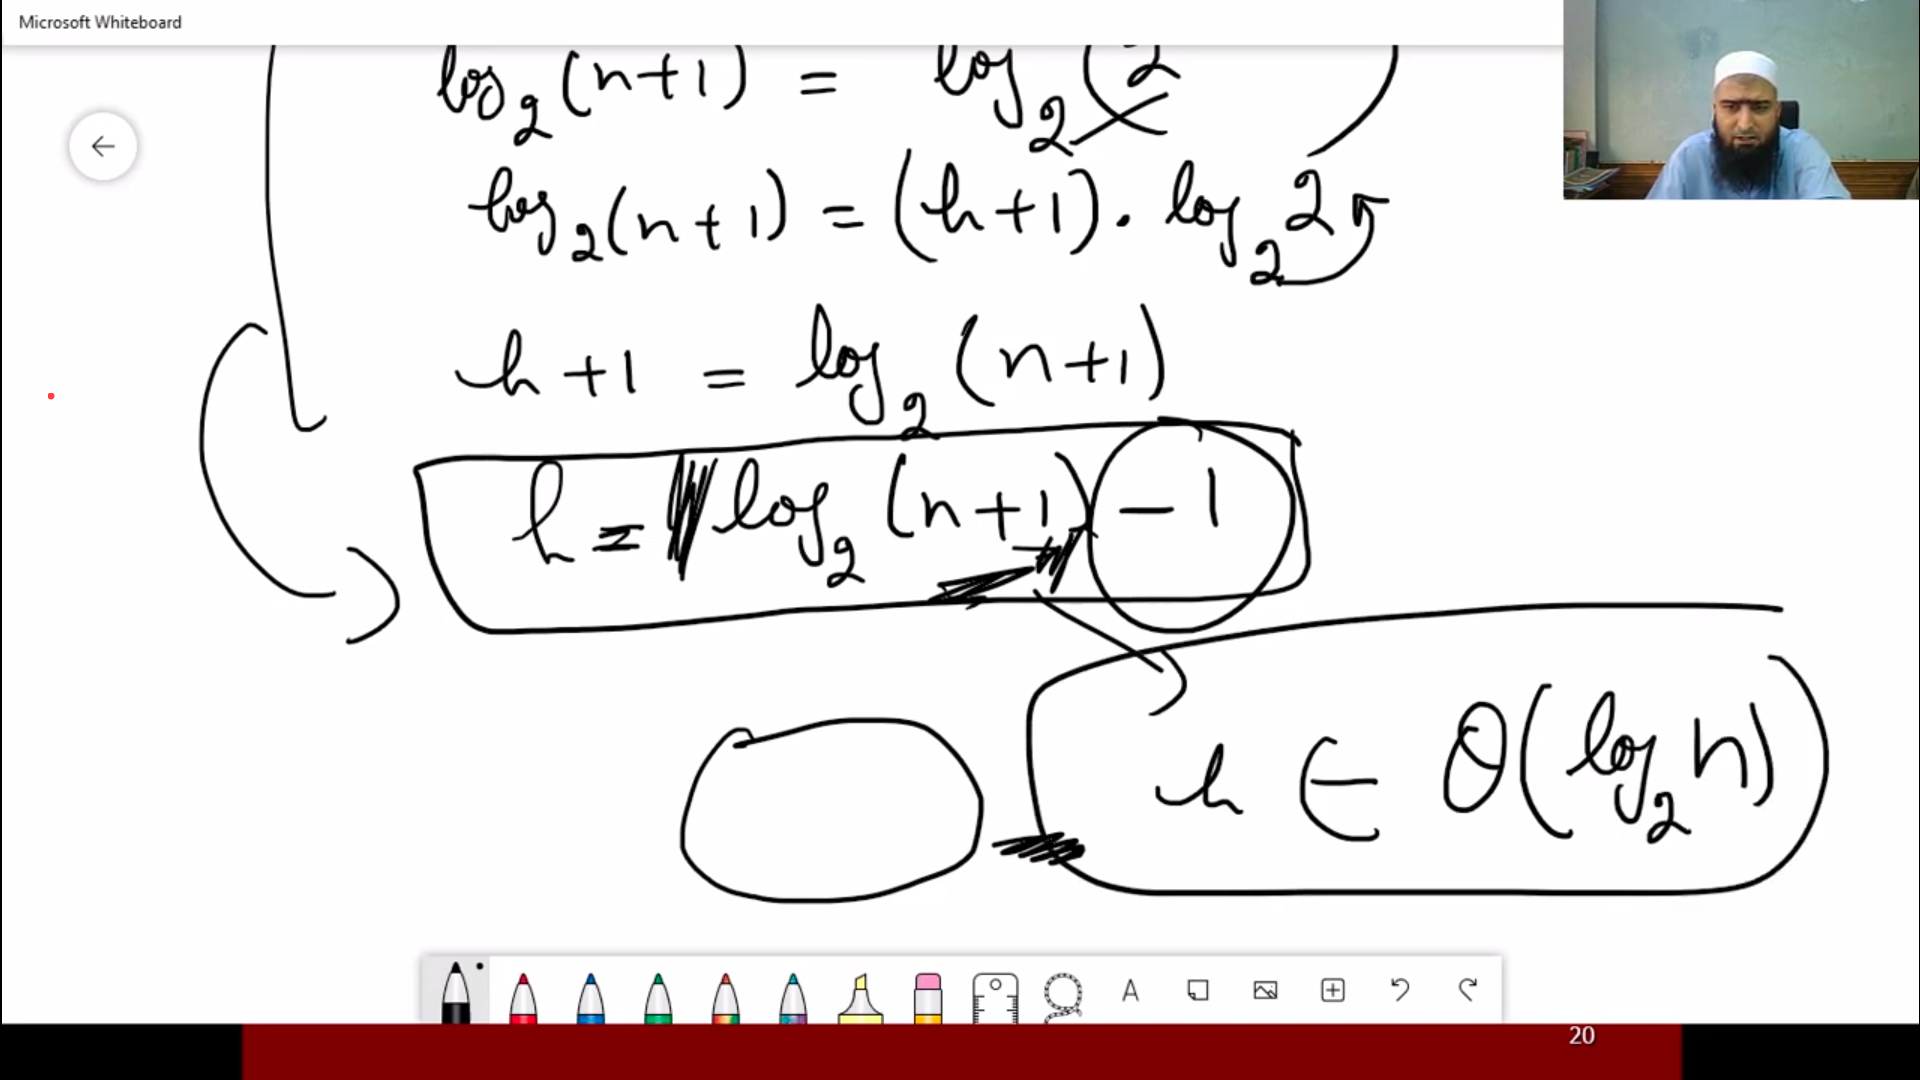 Microsoft Whiteboard
log₂(n+1) = log₂(2
log₂(n+1) = (h+1) · log₂2
h+1 = log₂(n+1)
h = log₂(n+1) -1
h ∈ θ(log₂n)
A
20